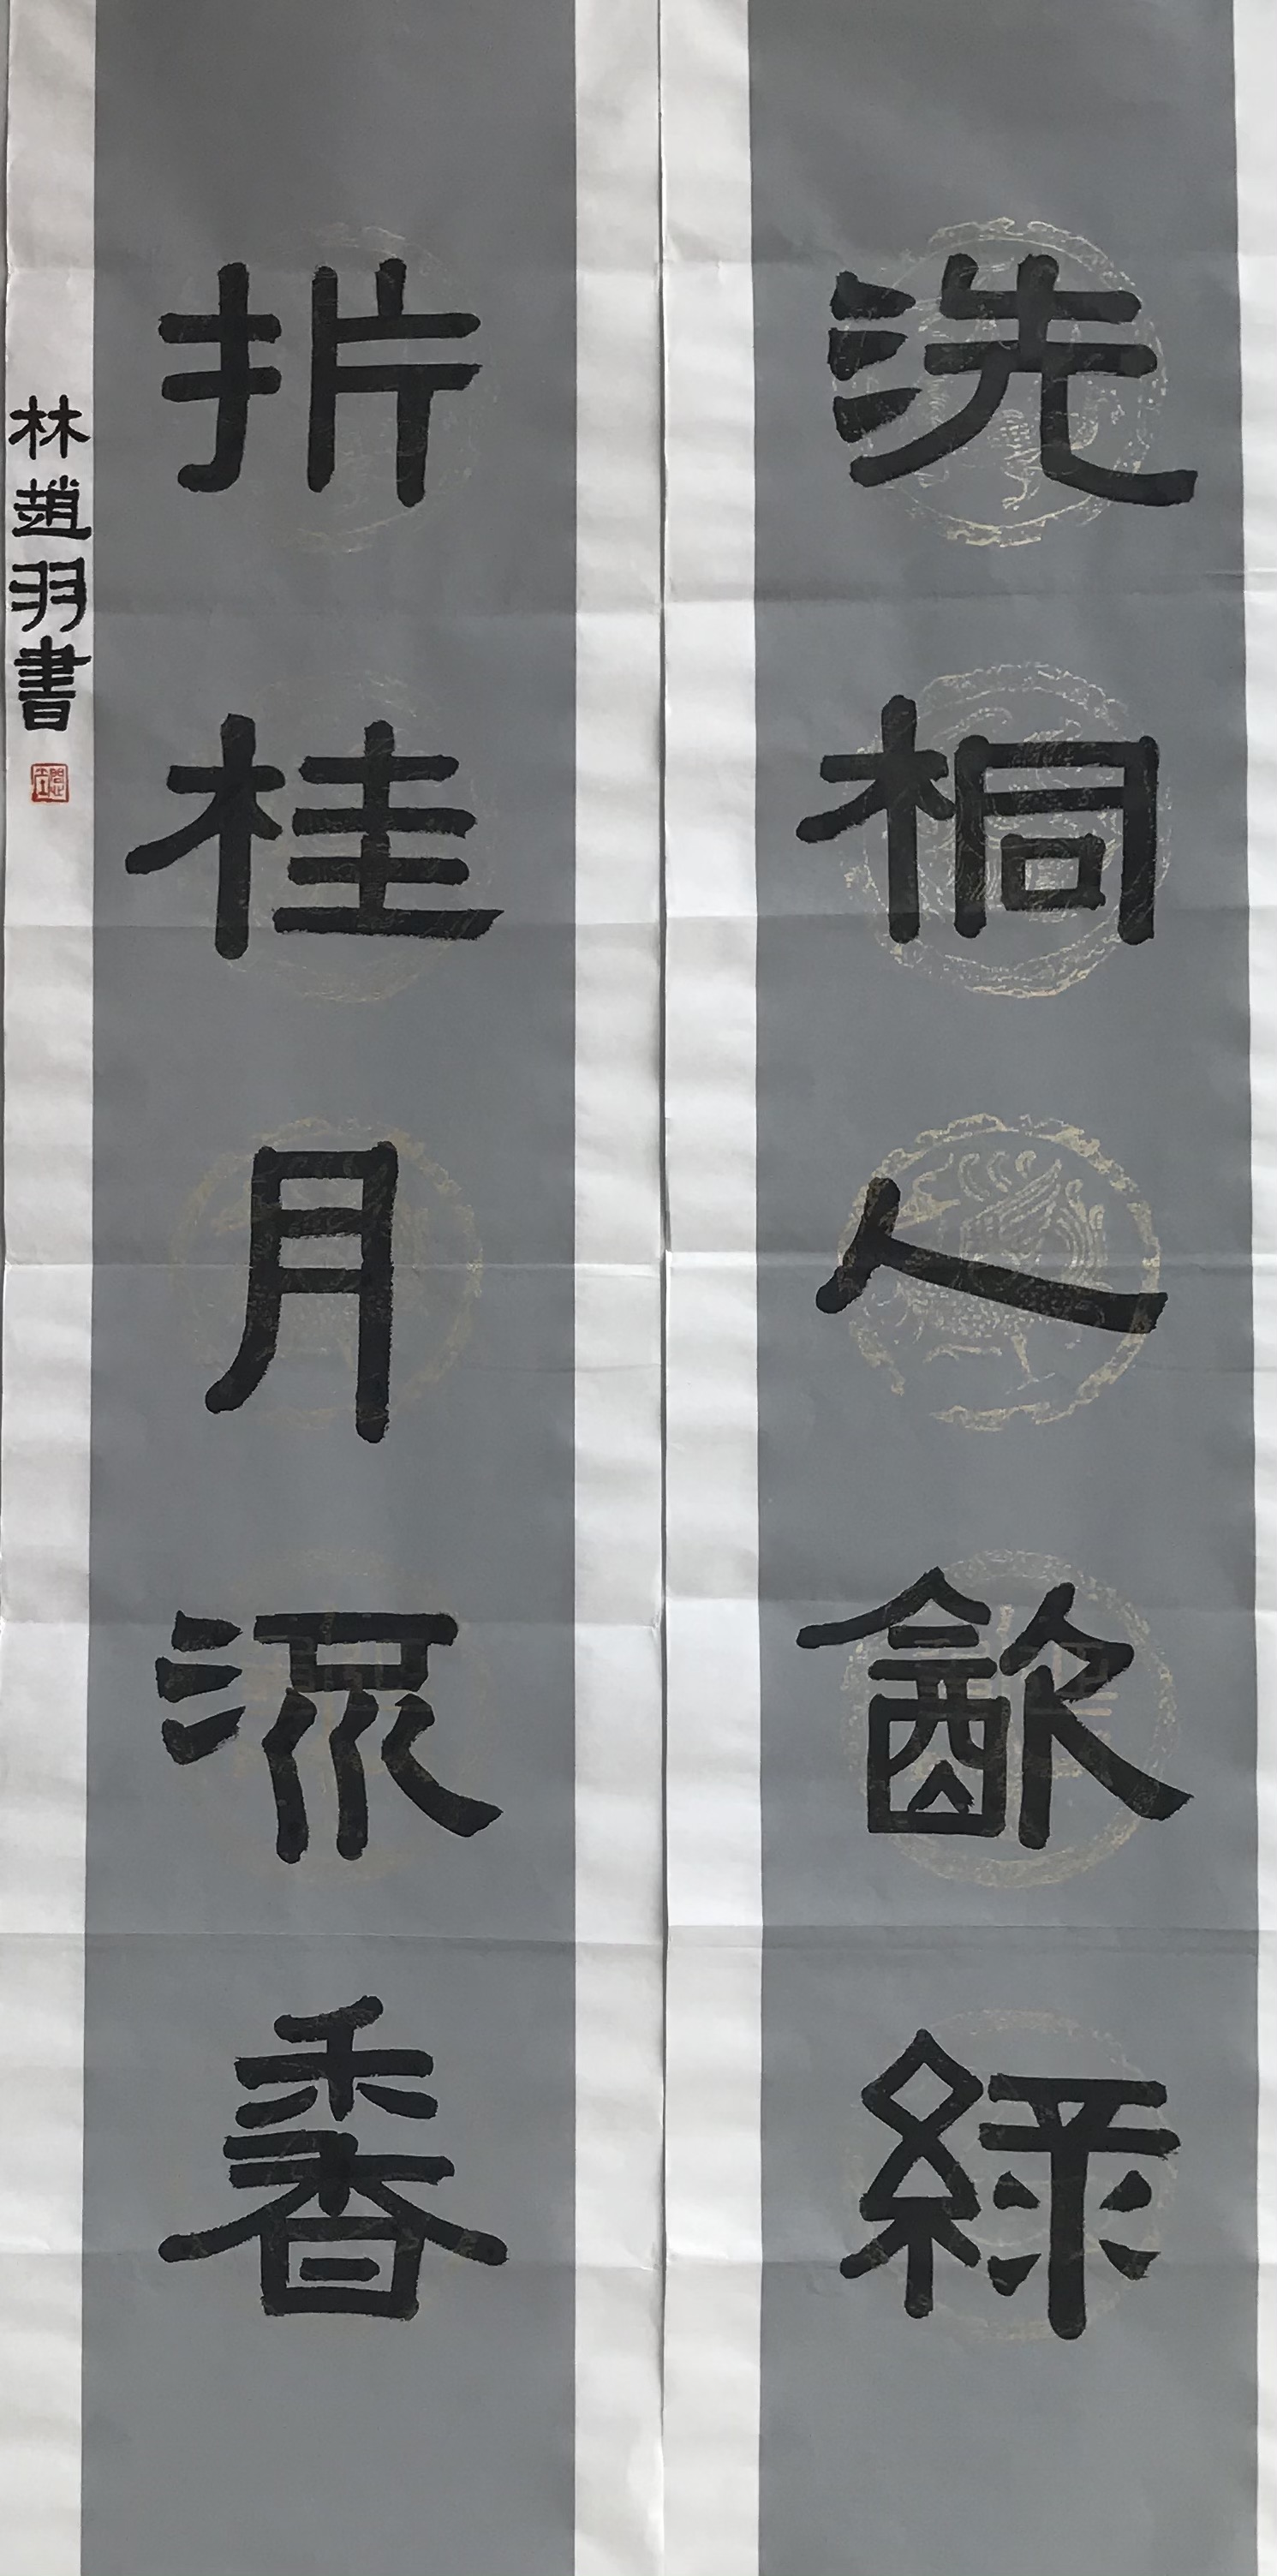 洗桐人飲綠
折桂月流香
林趙羽書